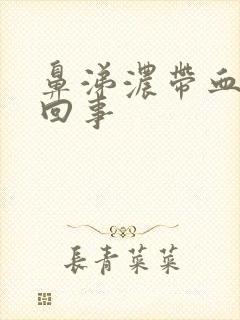 鼻涕濃帶血
回事
長青菜菜